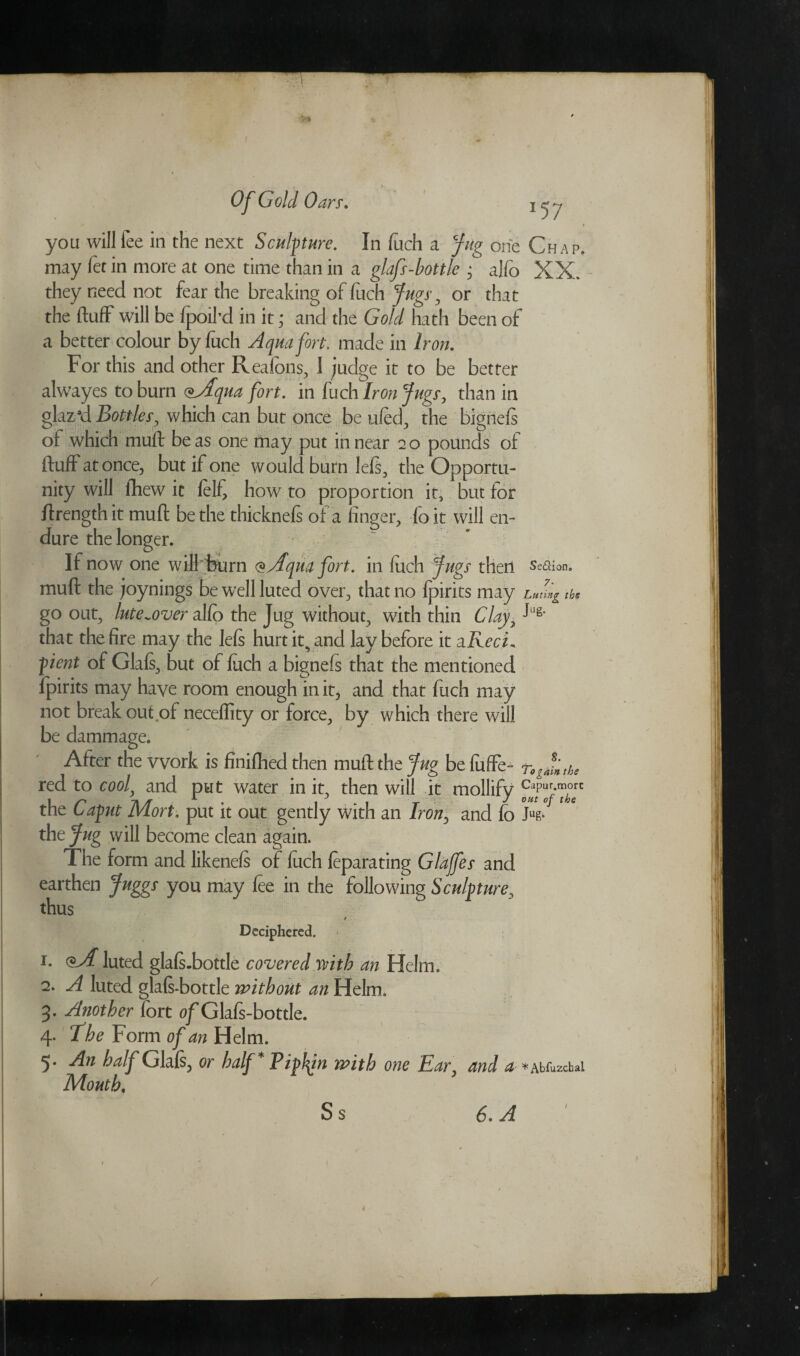 Of Gold Oars. 157
you will ſee in the next Sculpture. In ſuch a Jug one Chap.
may ſet in more at one time than in a glaſs-bottle ; alſo XX.
they need not fear the breaking of ſuch Jugs, or that
the ſtuff will be ſpoil'd in it ; and the Gold hath been of
a better colour by ſuch Aqua fort. made in Iron.
For this and other Reaſons, I judge it to be better
alwayes to burn Aqua fort. in ſuch Iron Jugs, than in
glaz'd Bottles, which can but once be uſed, the bigneſs
of which muſt be as one may put in near 20 pounds of
ſtuff at once, but if one would burn leſs, the Opportu-
nity will ſhew it ſelf, how to proportion it, but for
ſtrength it muſt be the thickneſs of a finger, ſo it will en-
dure the longer.
If now one will burn Aqua fort. in ſuch Jugs then Section.
muſt the joynings be well luted over, that no ſpirits may 7. Luting the
go out, lute-over alſo the Jug without, with thin Clay, Jug.
that the fire may the leſs hurt it, and lay before it a Reci-
pient of Glaſs, but of ſuch a bigneſs that the mentioned
ſpirits may have room enough in it, and that ſuch may
not break out of neceſſity or force, by which there will
be dammage.
After the work is finiſhed then muſt the Jug be ſuffe- 8. To gain the
red to cool, and put water in it, then will it mollify Caput.mort
the Caput Mort. put it out gently with an Iron, and ſo out of the Jug.
the Jug will become clean again.
The form and likeneſs of ſuch ſeparating Glaſſes and
earthen Juggs you may ſee in the following Sculpture,
thus
Deciphered.
1. A luted glaſs-bottle covered with an Helm.
2. A luted glaſs-bottle without an Helm.
3. Another ſort of Glaſs-bottle.
4. The Form of an Helm.
5. An half Glaſs, or half * Pipkin with one Ear, and a * Abfuzchal
Mouth.
S s 6. A